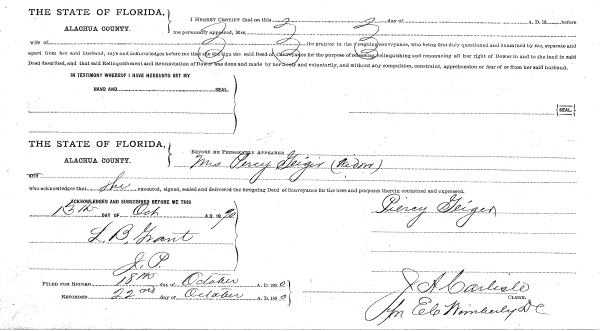 THE STATE OF FLORIDA,
ALACHUA COUNTY.
I HEREBY CERTIFY that on this day of A. D. 18 before
me personally appeared, Mrs.
wife of the grantor in the foregoing conveyance, who being first duly questioned and examined by me, separate and
apart from her said husband, says and acknowledges before me that she the said Deed of Conveyance for the purpose of releasing, relinquishing and renouncing all her right of Dower in and to the land in said
Deed described, and that said Relinquishment and Renunciation of Dower was done and made by her freely and voluntarily, and without any compulsion, constraint, apprehension or fear of or from her said husband.
IN TESTIMONY WHEREOF I HAVE HEREUNTO SET MY
HAND AND SEAL
SEAL
THE STATE OF FLORIDA,
ALACHUA COUNTY.
BEFORE ME PERSONALLY APPEARED
Mrs Percy Geiger (Widow)
and
who acknowledges that she executed, signed, sealed and delivered the foregoing Deed of Conveyance for the uses and purposes therein contained and expressed.
ACKNOWLEDGED AND SUBSCRIBED BEFORE ME THIS
13th DAY OF Oct A.D. 1890
Piercy Geiger
L. B. Grant
J. P.
FILED FOR RECORD 18th day of October A. D. 1890
RECORDED 22nd day of October A. D. 1890
J A Carlisle
CLERK.
Wimberly D C